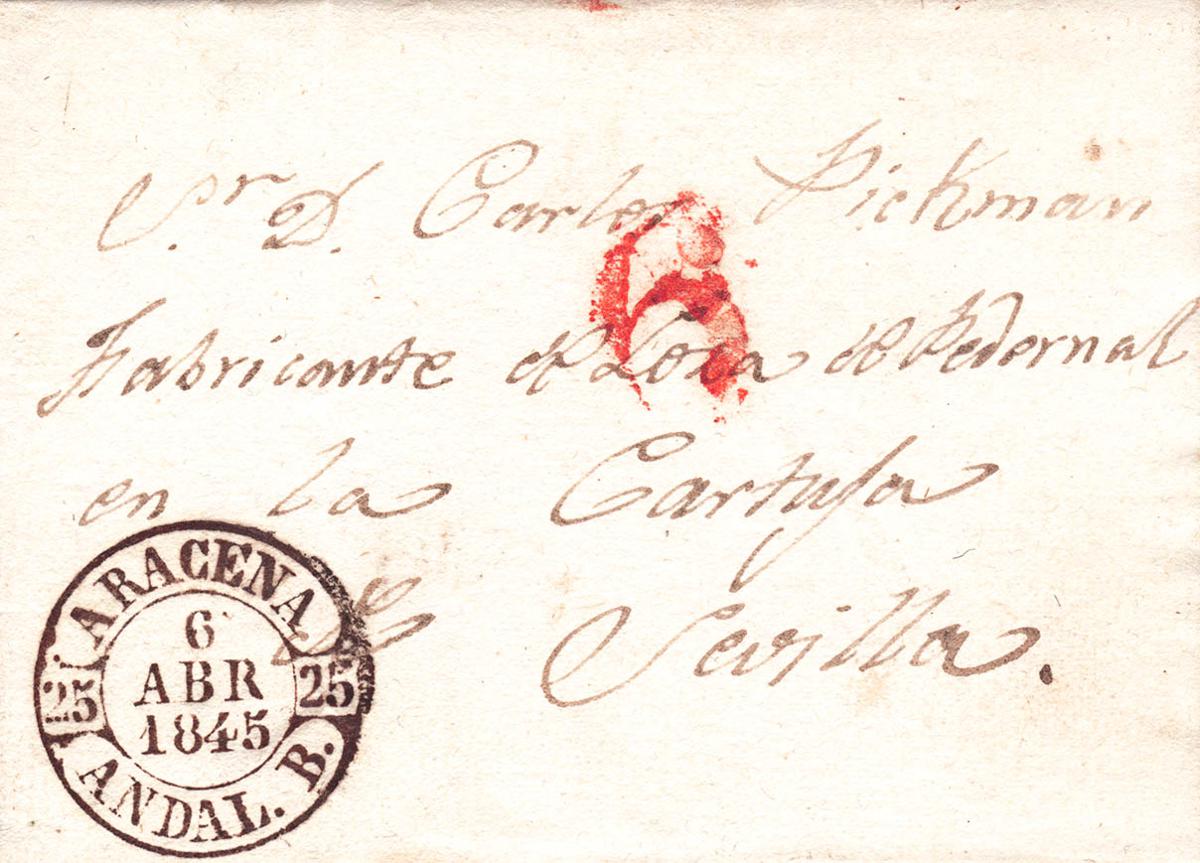 Sr. D. Carlos Pickman
6
Fabricante de Loza de Pedernal
en la Cartuja
Sevilla.
ARACENA
6
ABR
1845
25 25
ANDAL. B.